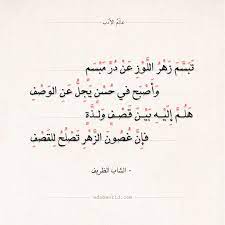 عالم الأدب
تَبَسَّمَ زَهْرُ اللَّوْزِ عَنْ دُرِّ مَبْسَمٍ
وَأَصْبَحَ في حُسْنٍ يَجِلُّ عَنِ الوَصْفِ
هَلُمَّ إِلَيهِ بَيْنَ قَصْفٍ وَلَذَّةٍ
فَإِنَّ غُصُونَ الزَّهْرِ تَصْلُحُ لِلقَصْفِ
- الشاب الظريف
adabworld.com